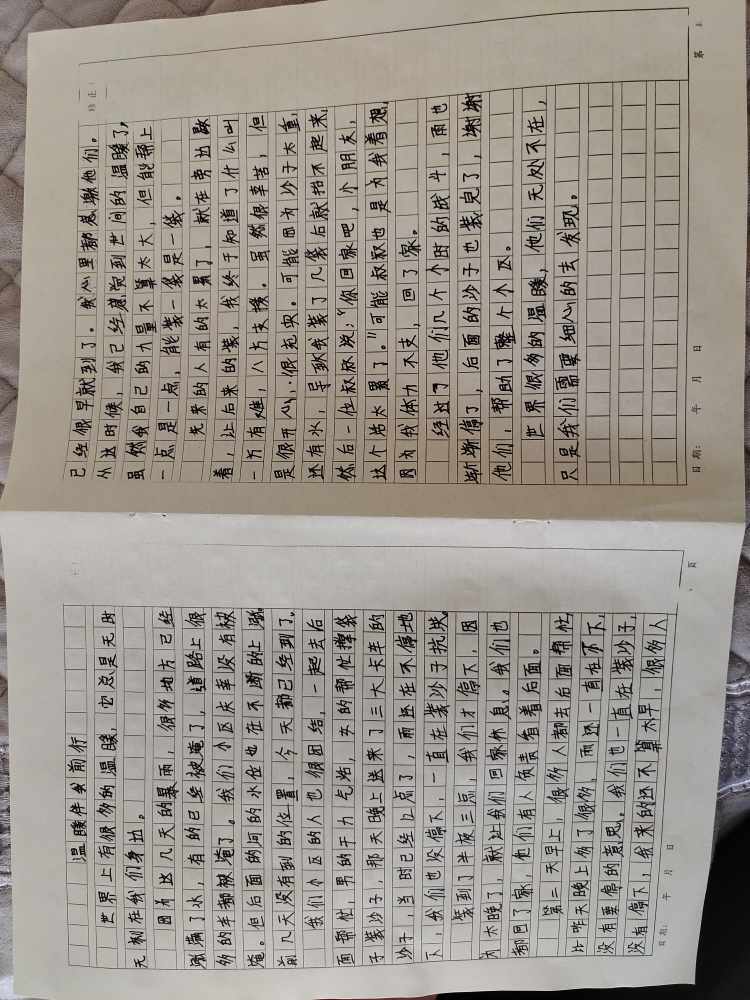 温暖伴我前行
世界上有很多的温暖，它总是无时
无刻在我们身边。
因为这几天的暴雨，很多地方已经
涨满了水，有的已经被淹了，道路上很
多的车都被淹了。我们小区庆幸没有被
淹。但后面的河的水位也在不断的上涨
前几天没有到的位置，今天都已经到了。
我们小区的人也很团结，一起去后
面帮忙，男的干力气活，女的帮忙撑袋
子装沙子，那天晚上送来了三大卡车的
沙子，当时已经上点了，雨还在不停地
下，我们也没停下，一直在装沙子抗洪。
装到了半夜三点，我们才停下，因
为太晚了，就让我们回家休息。我们也
都回了家，他们有人负责看着后面。
第二天早上，很多人都去后面帮忙
比昨天晚上多了很多，雨还一直在下下，
没有要停的意思。我们也一直在装沙子，
没有停下，我来的还不算太早，很多人
日期： 年 月 日
页
已经很早就到了。我心里都感激他们。
从这时候，我已经感觉到世间的温暖了。
虽然我自己的力量不算太大，但能帮上
一点是一点，能装一袋是一袋。
先来的人有的太累了，就在旁边歇
着，让后来的装，我终于知道了什么叫
一方有难，八方支援。虽然很辛苦，但
是很开心，很充实。可能因为沙子太重，
还有水，导致我装了几袋后就抬不起来，
然后一位叔叔说：“你回家吧，小朋友，
这个活太累了。”可能叔叔也是为我着想，
因为我体力不支，回了家。
经过了他们几个小时的战斗，雨也
渐渐停了，后面的沙子也装完了，谢谢
他们，帮助了整个小区。
世界很多的温暖，他们无处不在，
只是我们需要细心的去发现。
日期： 年 月 日
第